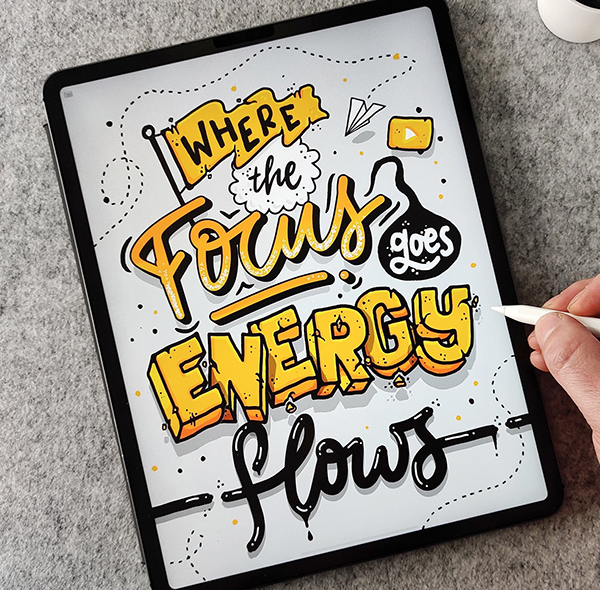 WHERE
the
Focus
goes
ENERGY
flows